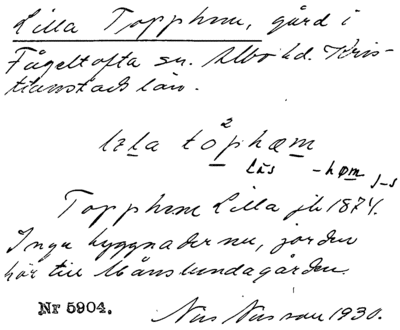 Lilla Topphem, gård i
Fågeltofta sn. Albo hd. Kris-
tianstads län.
lɪla tòp²hæm
läs -høm J-s
Topphem Lilla jb 1874.
Inga byggnader nu, jorden
hör till Månslundagården.
Nr 5904. Nils Nilsson 1930.